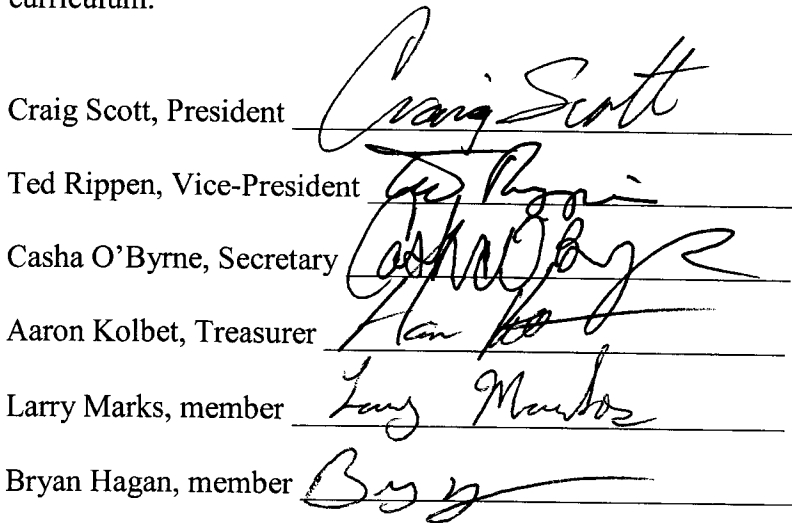 curriculum.
Craig Scott, President Craig Scott
Ted Rippen, Vice-President Ted Rippen
Casha O'Byrne, Secretary Casha O'Byrne
Aaron Kolbet, Treasurer
Larry Marks, member Larry Marks
Bryan Hagan, member